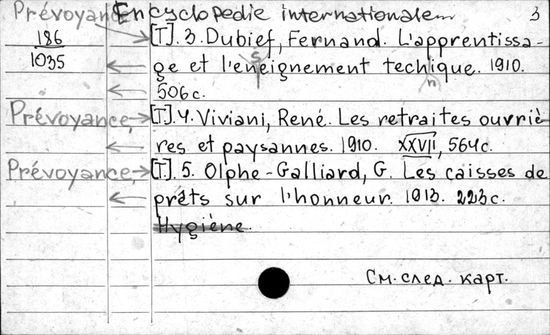 Prévoyance, Encyclopedie internationale 3
186
1035
[T]. 3. Dubief, Fernand. L'apprentissa-
ge et l'enseignement technique. 1910.
506 с.
Prévoyance, [T]. 4. Viviani, René. Les retraites ouvriè-
res et paysannes. 1910. XXVII, 564 с.
Prévoyance, [T]. 5. Olphe-Galliard, G. Les caisses de
prêts sur l'honneur. 1913. 223 с.
Hygiène.
См. след. карт.